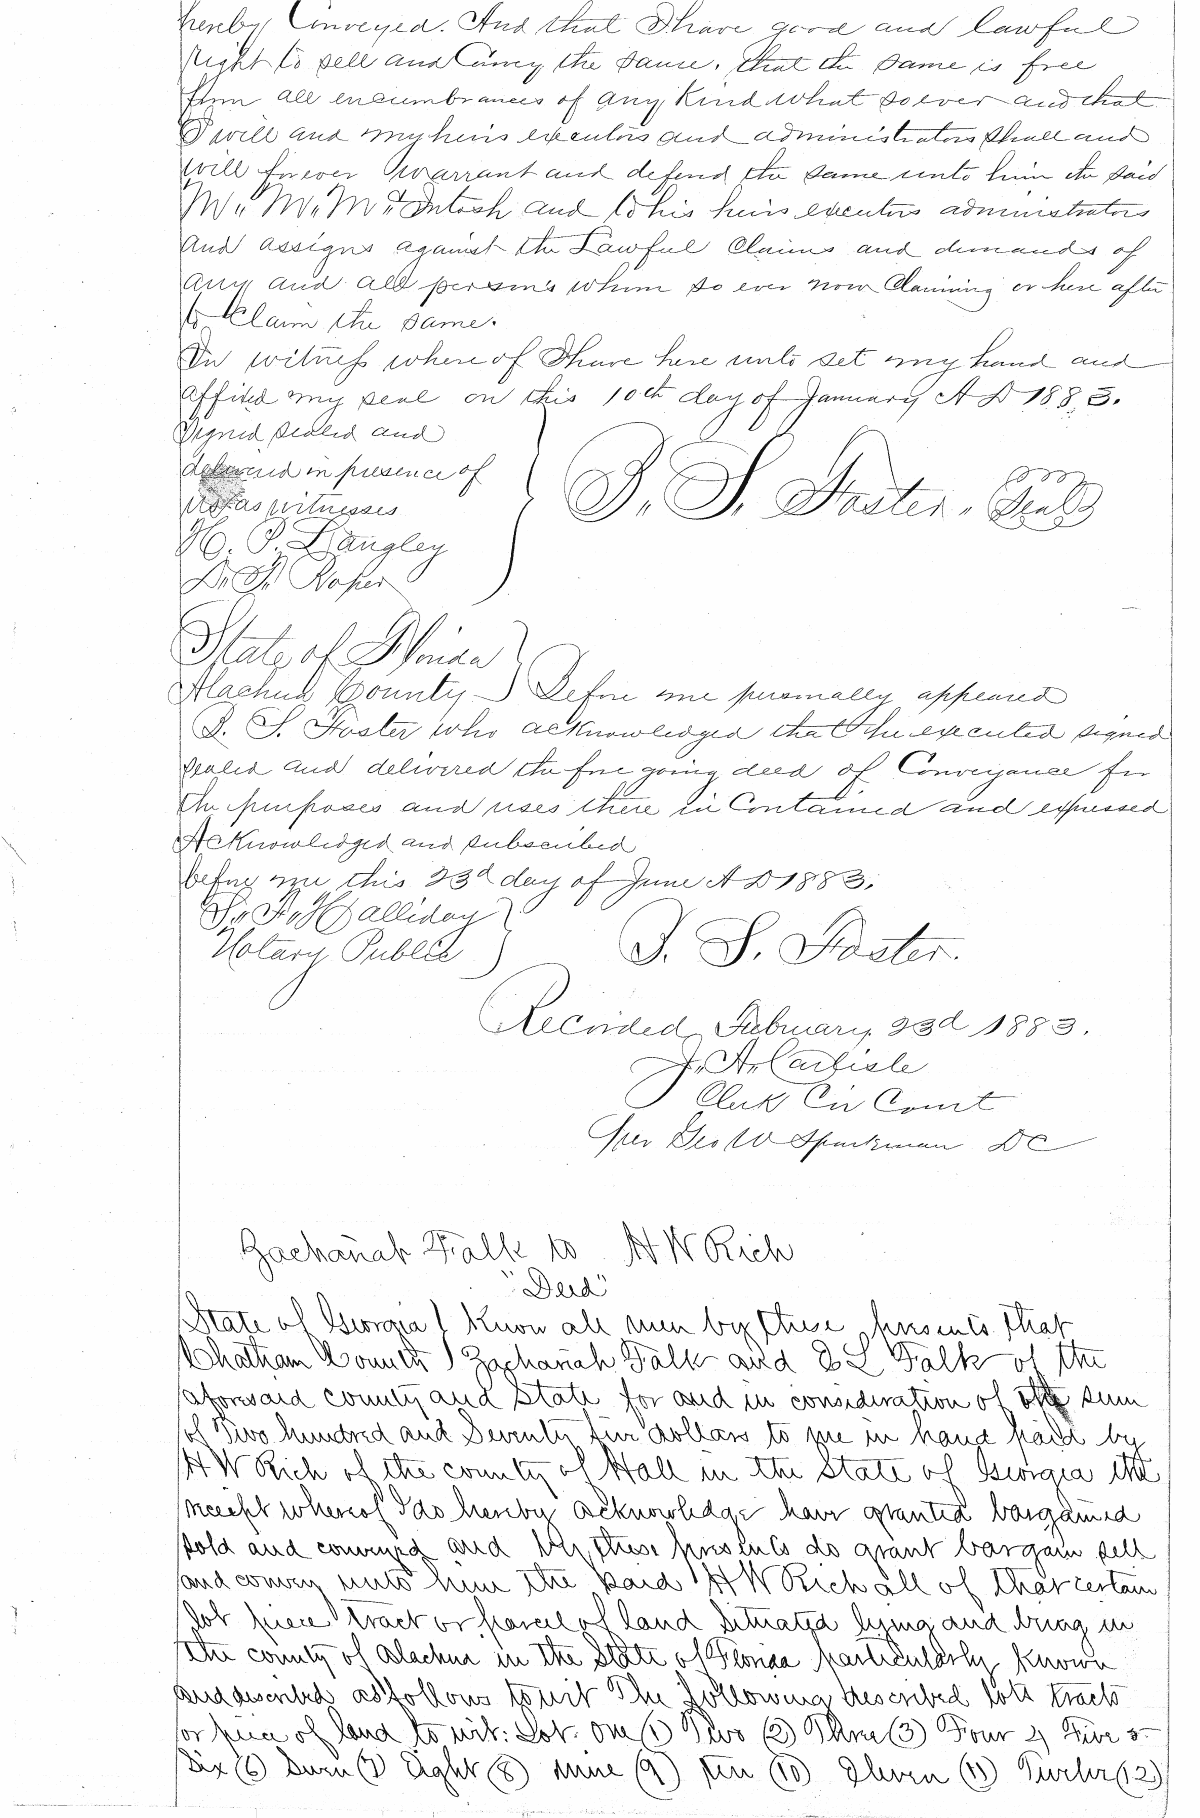 hereby Conveyed. And that I have good and lawful
right to sell and Convey the same. that the same is free
from all encumbrances of any kind what so ever and that
I will and my heirs executors and administrators shall and
will forever warrant and defend the same unto him the said
M. M. McIntosh and to his heirs executors administrators
and assigns against the Lawful Claims and demands of
any and all persons whom so ever now Claiming or here after
to Claim the same.
In witness where of I have here unto set my hand and
affixed my seal on this 10th day of January A D 1883.
Signed sealed and
delivered in presence of
us as witnesses
H. P. Langley
D. F. Roper
S. Foster. Seal
State of Florida
Alachua County Before me personally appeared
S. Foster who acknowledged that he executed signed
sealed and delivered the fore going deed of Conveyance for
the purposes and uses there in Contained and expressed
Acknowledged and subscribed
before me this 23d day of June A D 1883.
S. F. Halliday
Notary Public
S. Foster.
Recorded February 23d 1883.
J. A. Carlisle
Clerk Cir Court
Per Geo W Sparkman DC
Zachariah Falk to H W Rich
"Deed"
State of Georgia } Know all men by these presents that
Chatham County } Zachariah Falk and E L Falk of the
aforesaid county and State for and in consideration of the sum
of Two hundred and Seventy five dollars to me in hand paid by
H W Rich of the county of Hall in the State of Georgia the
receipt whereof I do hereby acknowledge have granted bargained
sold and conveyed and by these presents do grant bargain sell
and convey unto him the said H W Rich all of that certain
lot piece tract or parcel of land situated lying and being in
the county of Alachua in the State of Florida particularly known
and described as follows to wit The following described lots tracts
or piece of land to wit: Lot. One (1) Two (2) Three (3) Four 4) Five 5
Six (6) Seven (7) Eight (8) Nine (9) Ten (10) Eleven (11) Twelve (12)